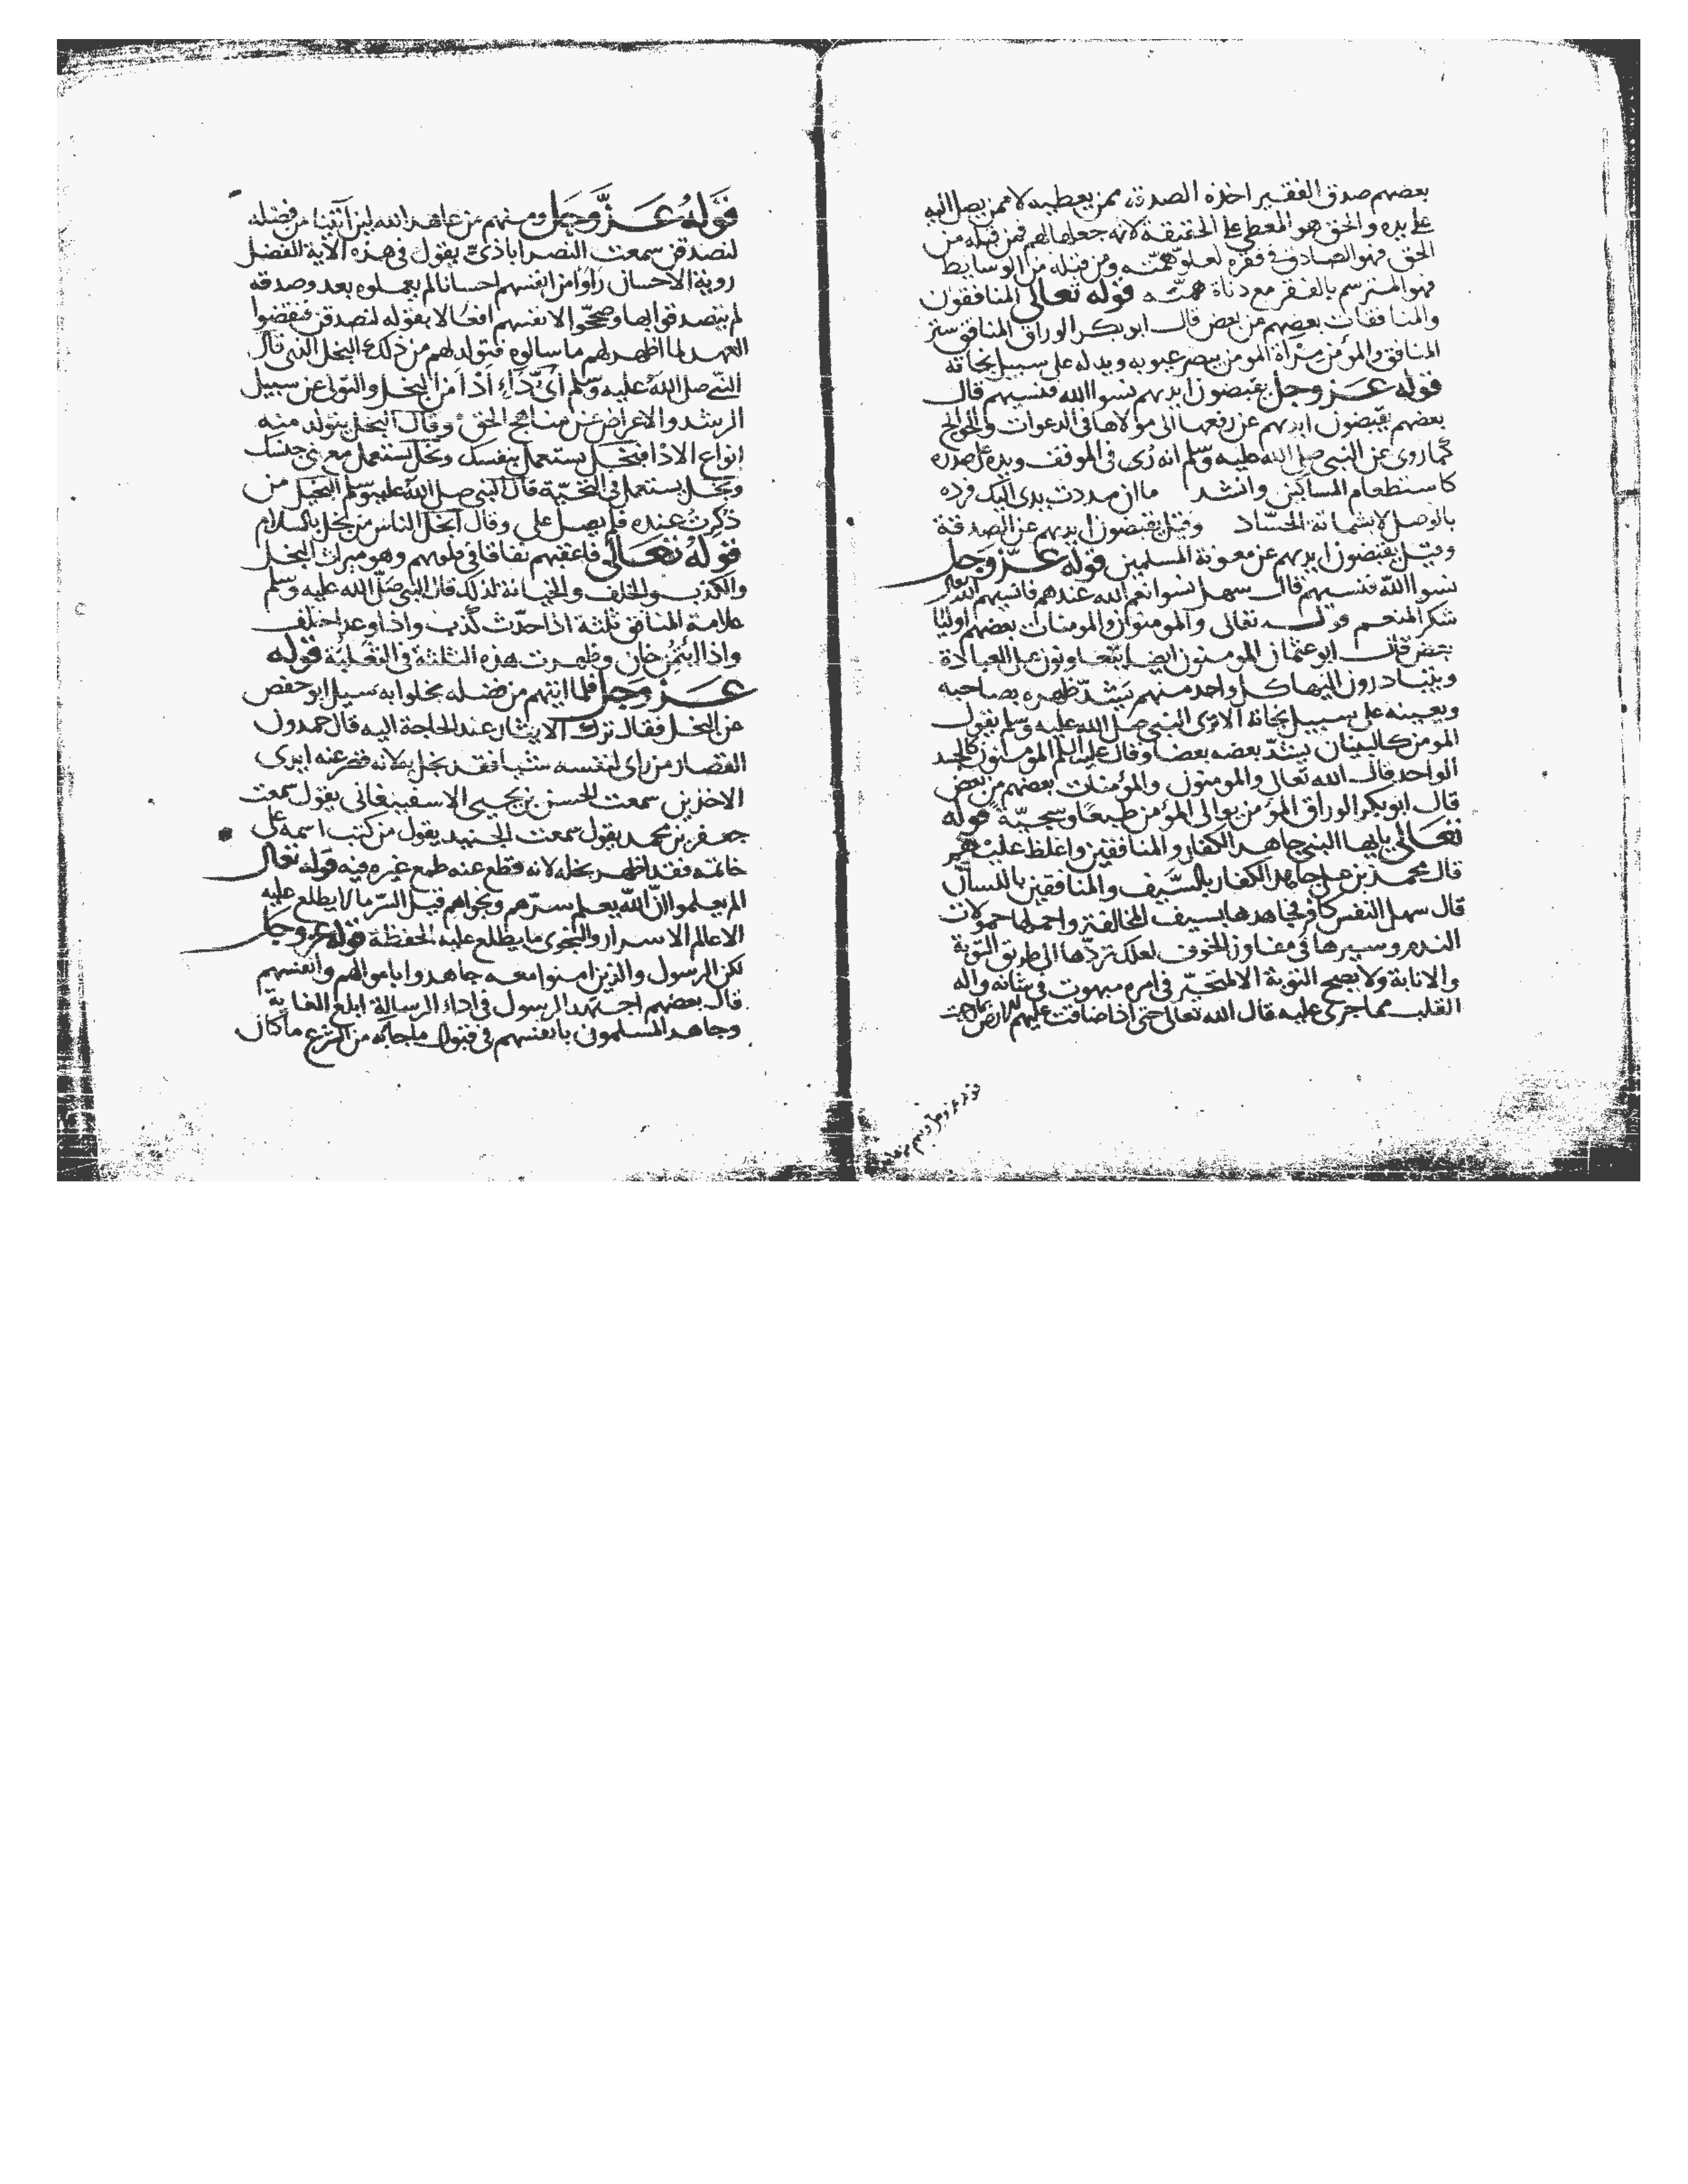 بعضهم صدق الفقير اخذه الصدقة ممن يعطيه لا ممن يصل اليه
على يده والحق هو المعطي على الحقيقة لانه جعلها لهم فمن قبله من
الحق فهو الصادق في فقره لعلو همته ومن قبله من الوسايط
فهو المترسم بالفقر مع دناة همته قوله تعالى المنافقون
والمنافقات بعضهم من بعض قال ابو بكر الوراق المنافق ستر
المنافق والمؤمن مرآة المومن يبصر عيوبه ويدله على سبيل نجاته
قوله عز وجل يقبضون ايديهم نسوا الله فنسيهم قال
بعضهم يقبضون ايديهم عن رفعها الى مولاها في الدعوات والحوايج
كما روي عن النبي صلى الله عليه وسلم انه رئ في الموقف ويده على صدره
كاستطعام المساكين وانشد ما ان مددت يدي اليك فرده
بالوصل لا بشماتة الحساد وقيل يقبضون ايديهم عن الصدقة
وقيل يقبضون ايديهم عن معونة المسلمين قوله عز وجل
نسوا الله فنسيهم قال سهل نسوا نعم الله عندهم فانسيهم الله
شكر المنعم قوله تعالى والمومنون والمومنات بعضهم اوليا
بعض قال ابو عثمان المومنون ايضا يتعاونون على العبادة
ويتبادرون اليها كل واحد منهم يشد ظهره بصاحبه
ويعينه على سبيل نجاته الا ترى النبي صلى الله عليه وسلم يقول
المومن كالبنيان يشد بعضه بعضا وقال عليه السلم المومنون كالجسد
الواحد قال الله تعالى والمومنون والمؤمنات بعضهم من بعض
قال ابو بكر الوراق المؤمن يوالي المؤمن طبعا وسجية قوله
تعالى يايها النبي جاهد الكفار والمنافقين واغلظ عليهم
قال محمد بن علي جاهد الكفار بالسيف والمنافقين باللسان
قال سهل النفس كافر فجاهدها بسيف المخالفة واحملها حمولات
الندم وسيرها في مفاوز الخوف لعلك تردها الى طريق التوبة
والانابة ولا يصح التوبة الا لمتحير في امره مبهوت في شانه واله
القلب مما جرى عليه قال الله تعالى حتى اذا ضاقت عليهم الارض بما رحبت
قوله عز وجل ومنهم من عاهد
قوله عز وجل ومنهم من عاهد الله لئن آتينا من فضله
لنصدقن سمعت النصراباذي يقول في هذه الآية الفضل
روية الاحسان راوا من انفسهم احسانا لم يعملوه بعد وصدقة
لم يتصدقوا بها وصححوا لانفسهم افعالا بقوله لنصدقن فنقضوا
العهد لما اظهر لهم ما سالوه فتولد لهم من ذلك البخل الذي قال
النبي صلى الله عليه وسلم اي داء ادأ من البخل والتولي عن سبيل
الرشد والاعراض عن مناهج الحق وقال البخل يتولد منه
انواع الاذا فبخل يستعمل بنفسك وبخل يستعمل مع بني جنسك
وبخل يستعمل في التحية قال النبي صلى الله عليه وسلم البخيل من
ذكرت عنده فلم يصل علي وقال ابخل الناس من بخل بالسلام
قوله تعالى فاعقبهم نفاقا في قلوبهم وهو ميراث البخل
والكذب والخلف والخيانة لذلك قال النبي صلى الله عليه وسلم
علامة المنافق ثلثة اذا حدث كذب واذا وعد اخلف
واذا ائتمن خان وظهرت هذه الثلثة في الثعلبة قوله
عز وجل فلما اتيهم من فضله بخلوا به سيل ابو حفص
عن البخل فقال ترك الايثار عند الحاجة اليه قال حمدون
القصار من راى لنفسه شيا فقد بخل به لانه قصر عنه ايدى
الاخذين سمعت الحسن بن يحيى الاسفيغاني يقول سمعت
جعفر بن محمد يقول سمعت الجنيد يقول من كتب اسمه على
خاتمه فقد اظهر بخله لانه قطع عنه طمع غيره فيه قوله تعالى
الم يعلموا ان الله يعلم سرهم ونجواهم قيل السر ما لا يطلع عليه
الا عالم الاسرار والنجوى ما يطلع عليه الحفظة قوله عز وجل
لكن الرسول والذين امنوا معه جاهدوا باموالهم وانفسهم
قال بعضهم اجتهد الرسول في اداء الرسالة ابلغ الغاية
وجاهد المسلمون بانفسهم في قبول ما جاء به من الشرع ما كان